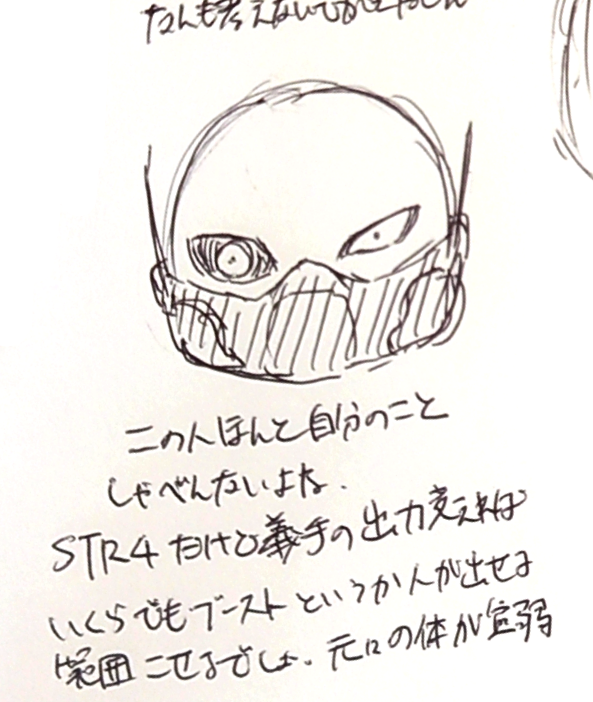 なんも考えないで
この人ほんと自分のこと
しゃべんないよな.
STR4 だけど義手の出力変えれば
いくらでもブーストというか人が出せる
範囲こせるでしょ. 元々の体が虚弱